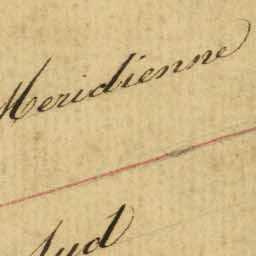 Meridienne
Sud